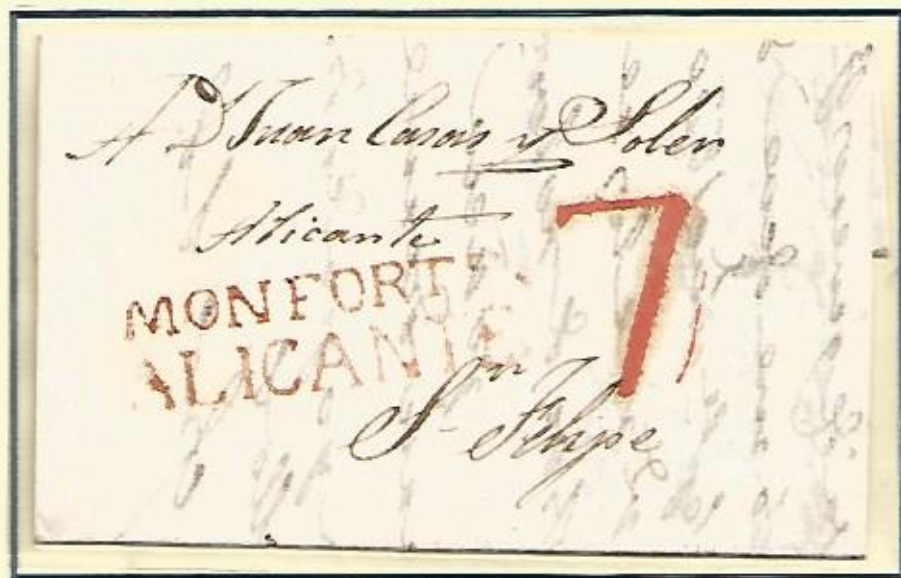 A Dn Juan Casas y Soler
Alicante
MONFORTE
ALICANTE
7
Sn Felipe